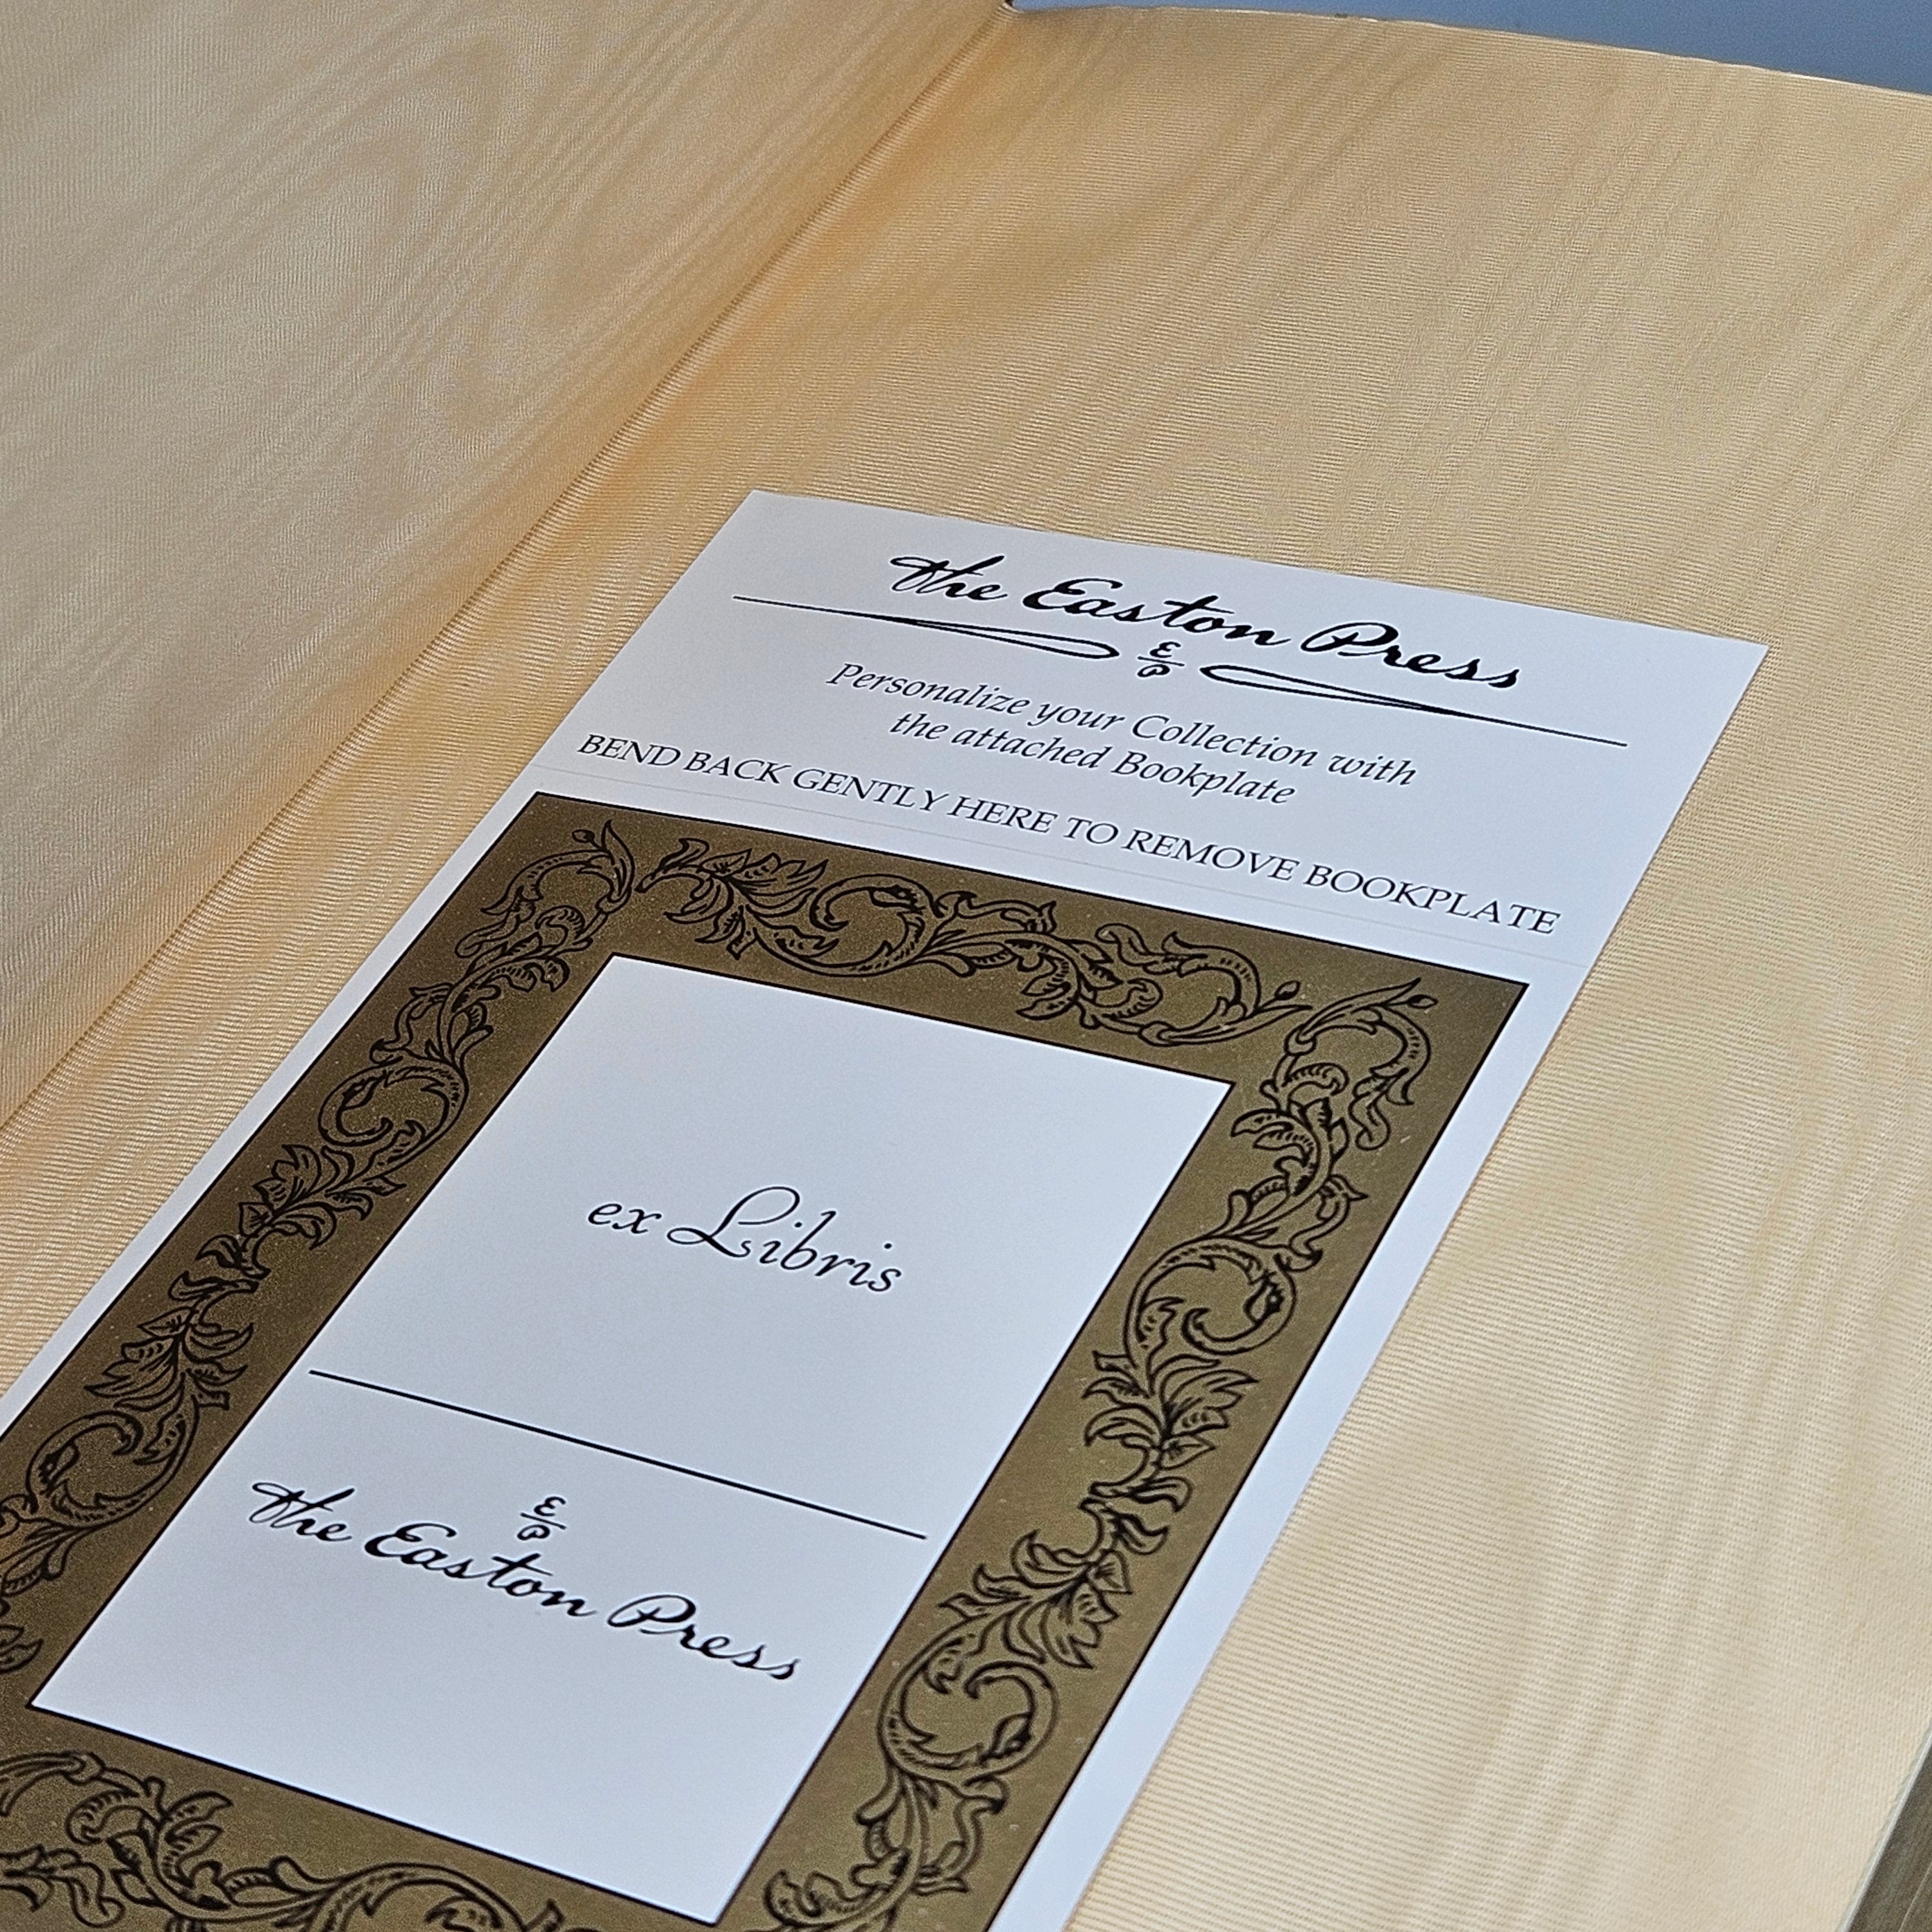 The Easton Press
EP
Personalize your Collection with
the attached Bookplate
BEND BACK GENTLY HERE TO REMOVE BOOKPLATE
ex Libris
EP
The Easton Press